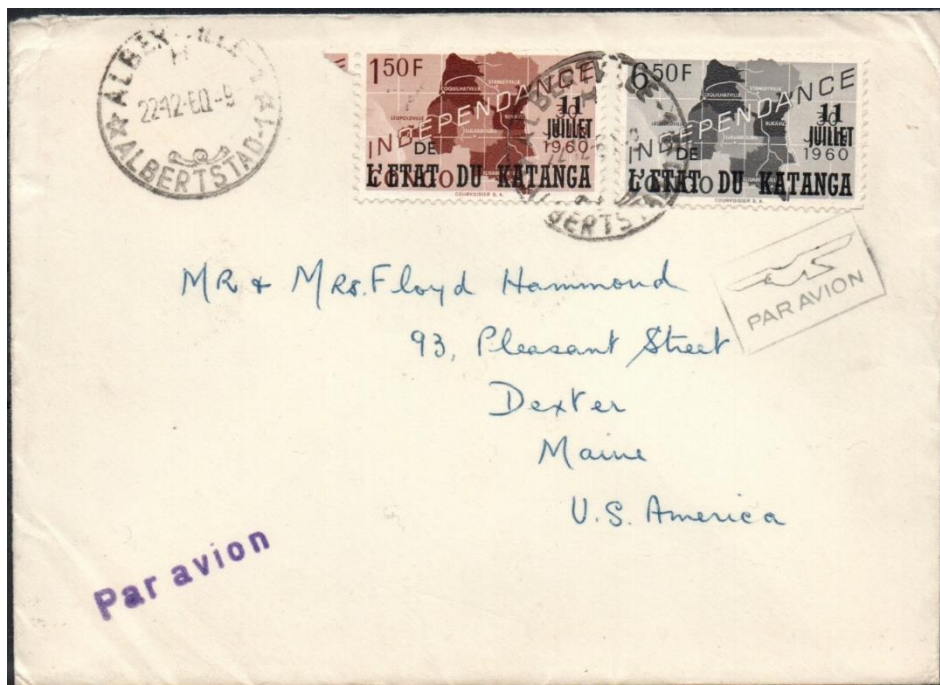 ALBERTSTAD-1
22-12-60-9
1 50 F
INDEPENDANCE
11
JUILLET
1960
DE
L'ETAT DU KATANGA
COURVOISIER S.A.
6 50 F
INDEPENDANCE
11
JUILLET
1960
DE
L'ETAT DU KATANGA
COURVOISIER S.A.
PAR AVION
MR & MRS. Floyd Hammond
93, Pleasant Street
Dexter
Maine
U.S. America
Par avion